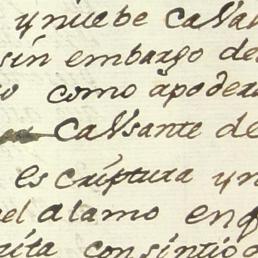 y nuebe caval
sin embargo de
como apodera
calsante de
escriptura y n
el alamo en q
rita consintio